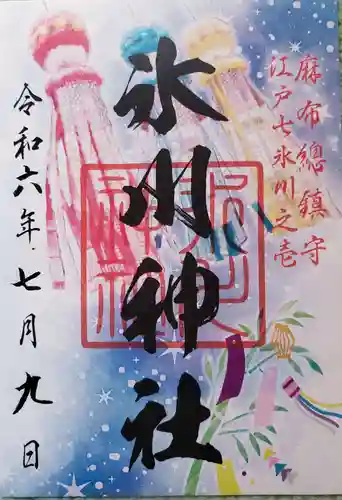 麻布總鎮守
江戸七氷川之壱
氷川神社
令和六年七月九日